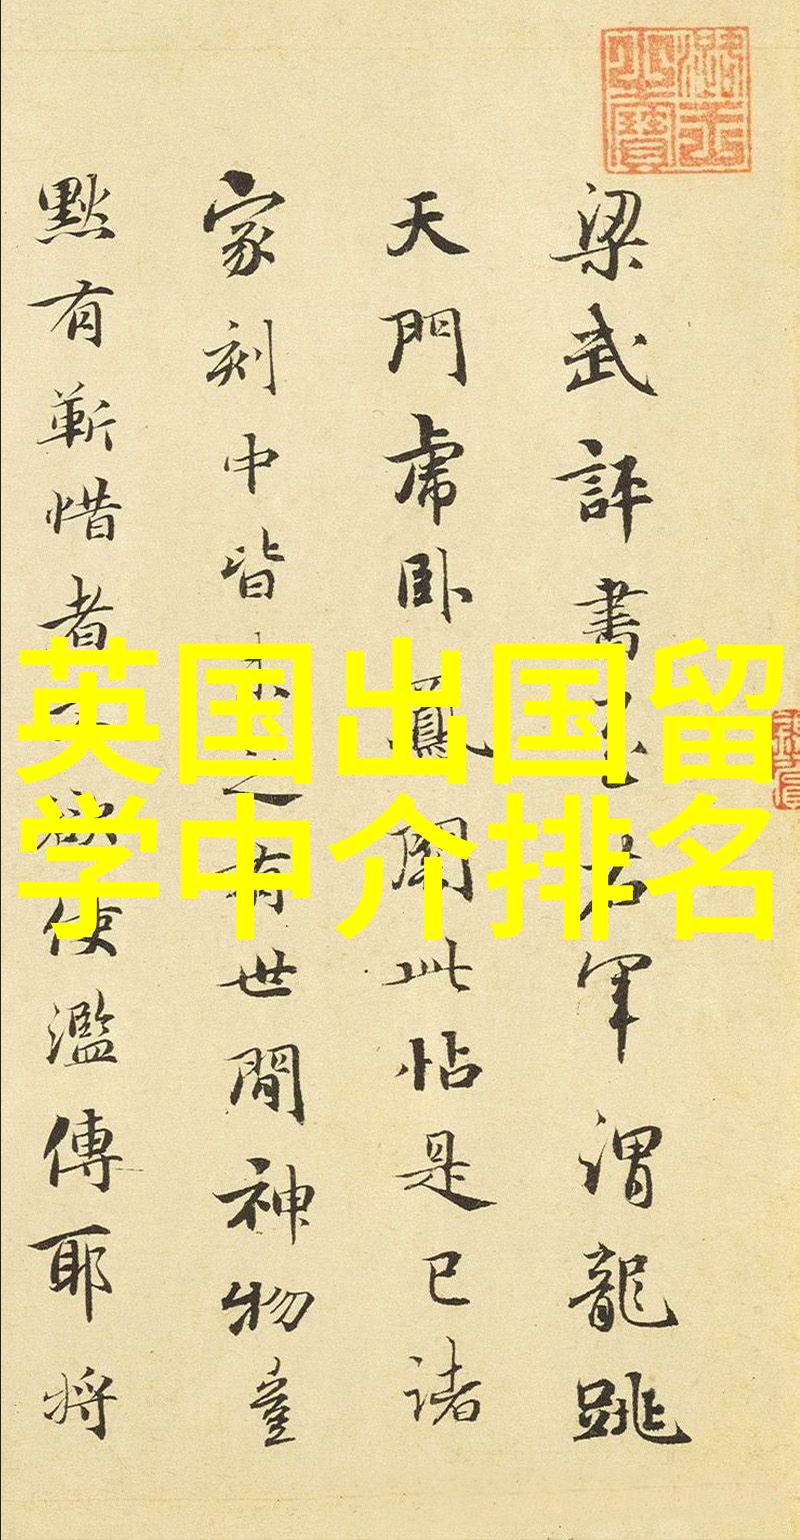 梁武評書至右軍謂龍跳
天門虎卧鳳閣此帖是已諸
家刻中皆未之有世間神物豈
默有靳惜者不欲使濫傳耶将
英国出国留
学中介排名